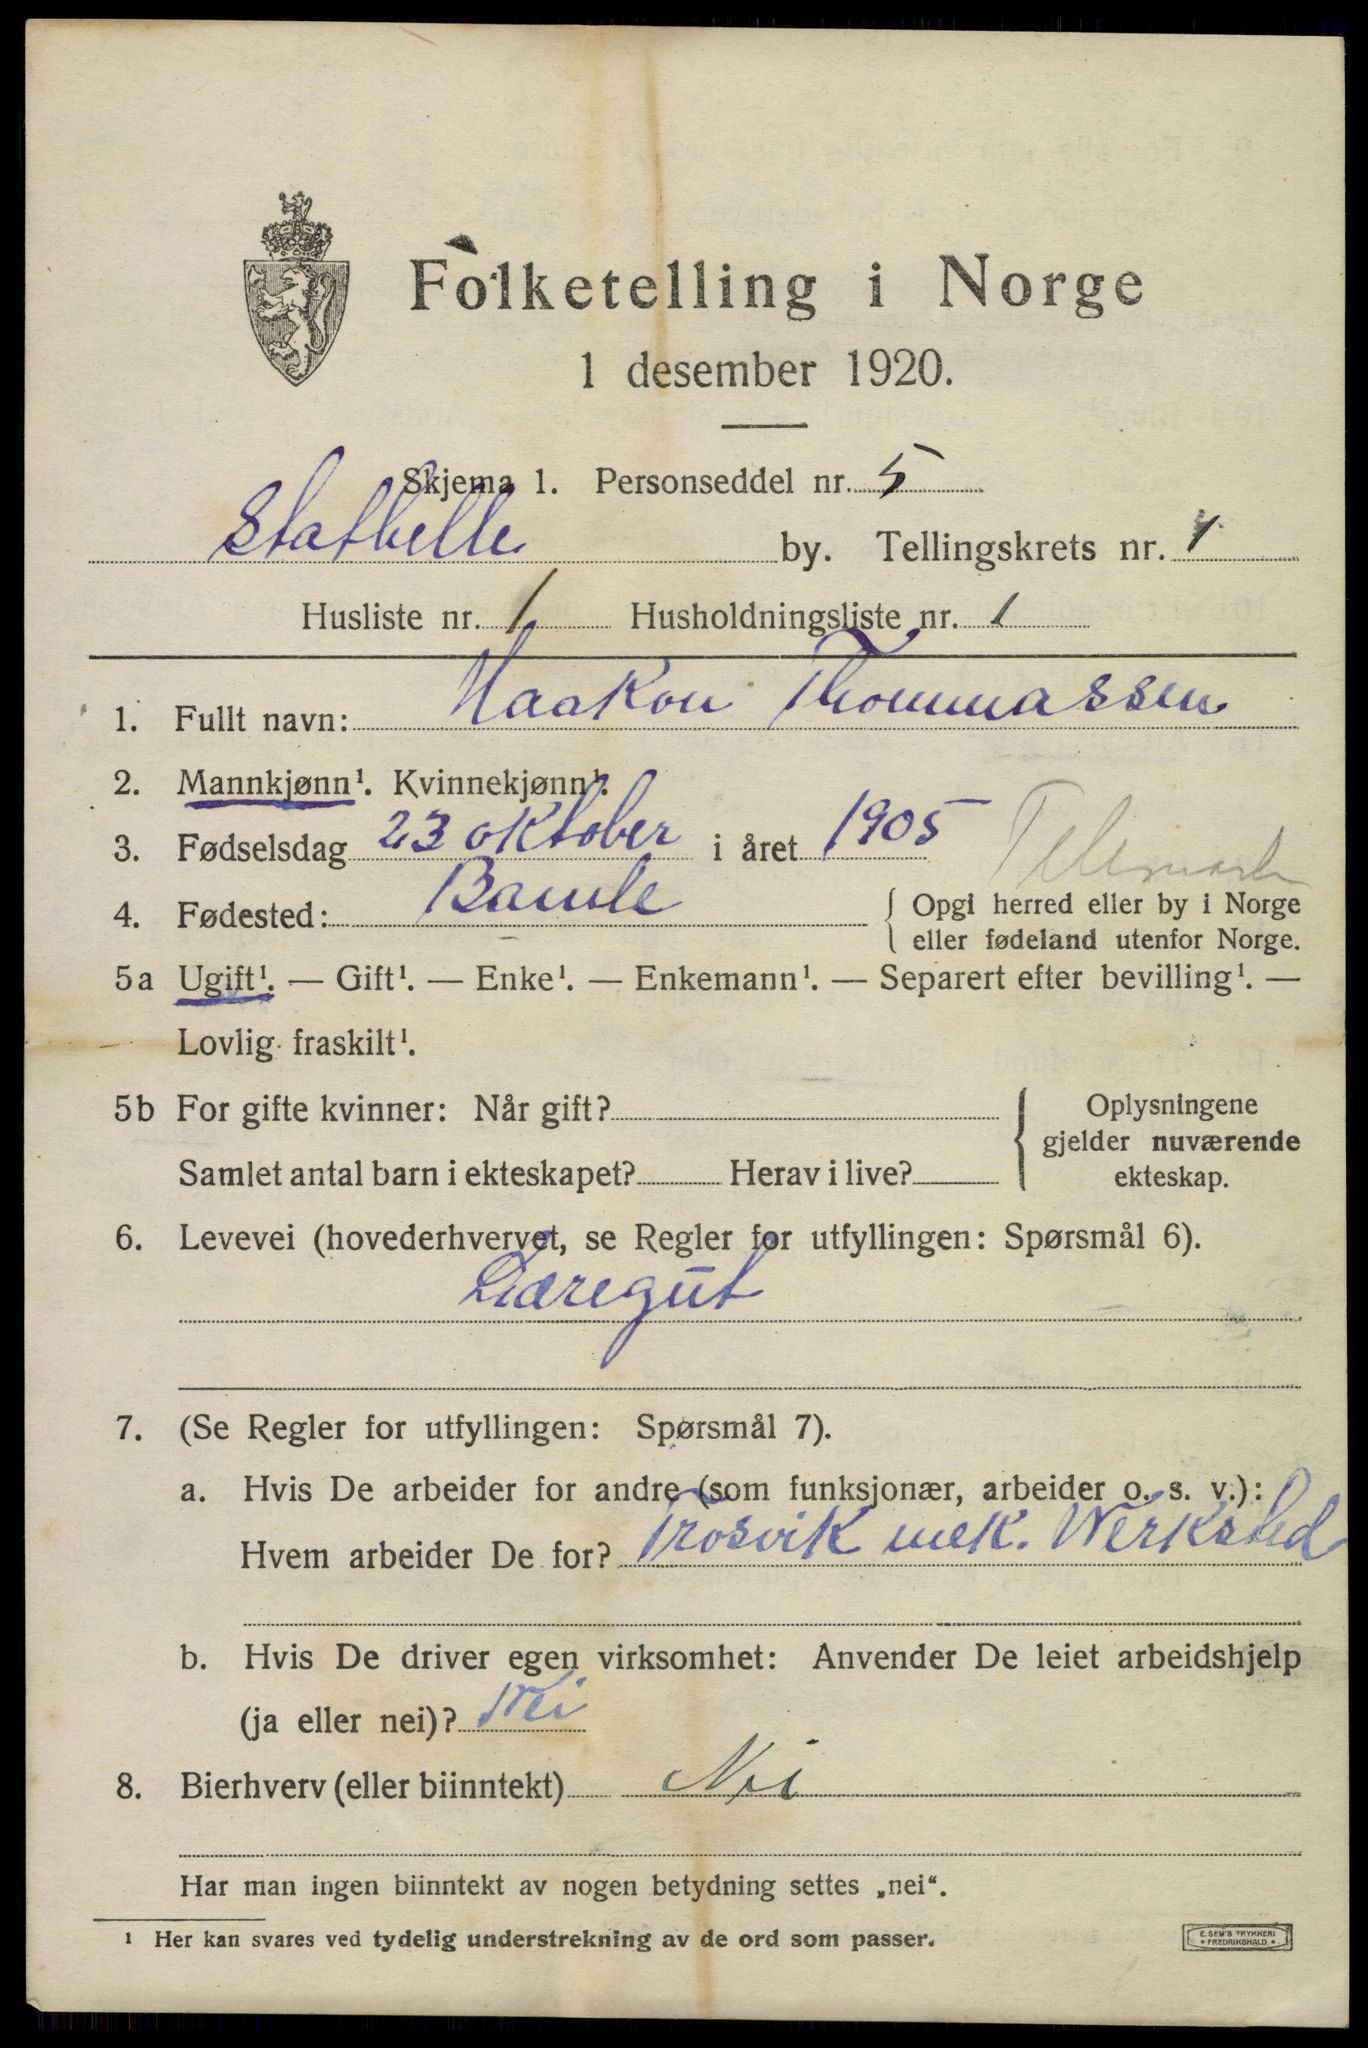 Folketelling i Norge
1 desember 1920.
Skjema 1. Personseddel nr. 5
Stathelle by. Tellingskrets nr. 1
Husliste nr. 1 Husholdningsliste nr. 1
1. Fullt navn: Haakon Thommassen
2. Mannkjønn¹. Kvinnekjønn¹.
3. Fødselsdag 23 oktober i året 1905 Telemark
4. Fødested: Bamle { Opgi herred eller by i Norge
eller fødeland utenfor Norge.
5a Ugift¹. — Gift¹. — Enke¹. — Enkemann¹. — Separert efter bevilling¹. —
Lovlig fraskilt¹.
5b For gifte kvinner: Når gift? { Oplysningene
gjelder nuværende
Samlet antal barn i ekteskapet? Herav i live? ekteskap.
6. Levevei (hovederhvervet, se Regler for utfyllingen: Spørsmål 6).
Læregut
7. (Se Regler for utfyllingen: Spørsmål 7).
a. Hvis De arbeider for andre (som funksjonær, arbeider o. s. v.):
Hvem arbeider De for? Trosvik mek. Werksted
b. Hvis De driver egen virksomhet: Anvender De leiet arbeidshjelp
(ja eller nei)? Nei
8. Bierhverv (eller biinntekt) Nei
Har man ingen biinntekt av nogen betydning settes „nei“.
¹ Her kan svares ved tydelig understrekning av de ord som passer.
E. SEM'S TRYKKERI
* FREDRIKSHALD. *